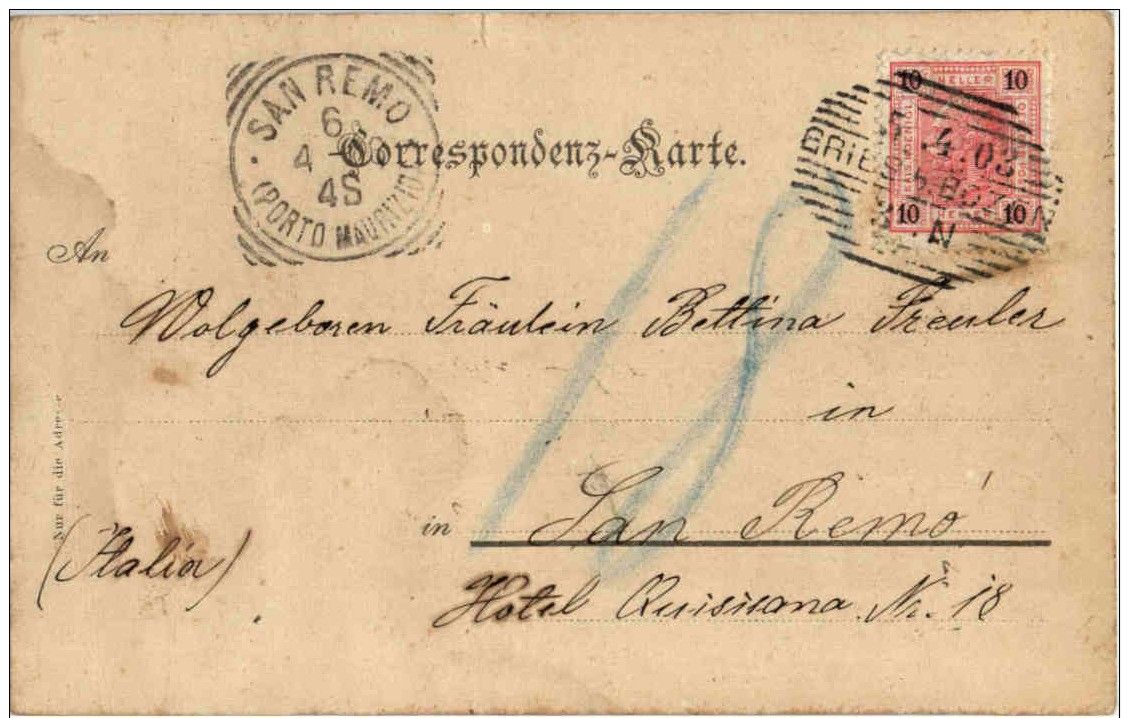 SAN REMO
6
4
4S
(PORTO MAURIZIO)
Correspondenz-Karte.
10 HELLER 10
10 10
4.03
An
Wolgeboren Fräulein Bettina Freuler
in
in San Remo
(Italia)
Hotel Quisisana Nr. 18
18
Nur für die Adresse